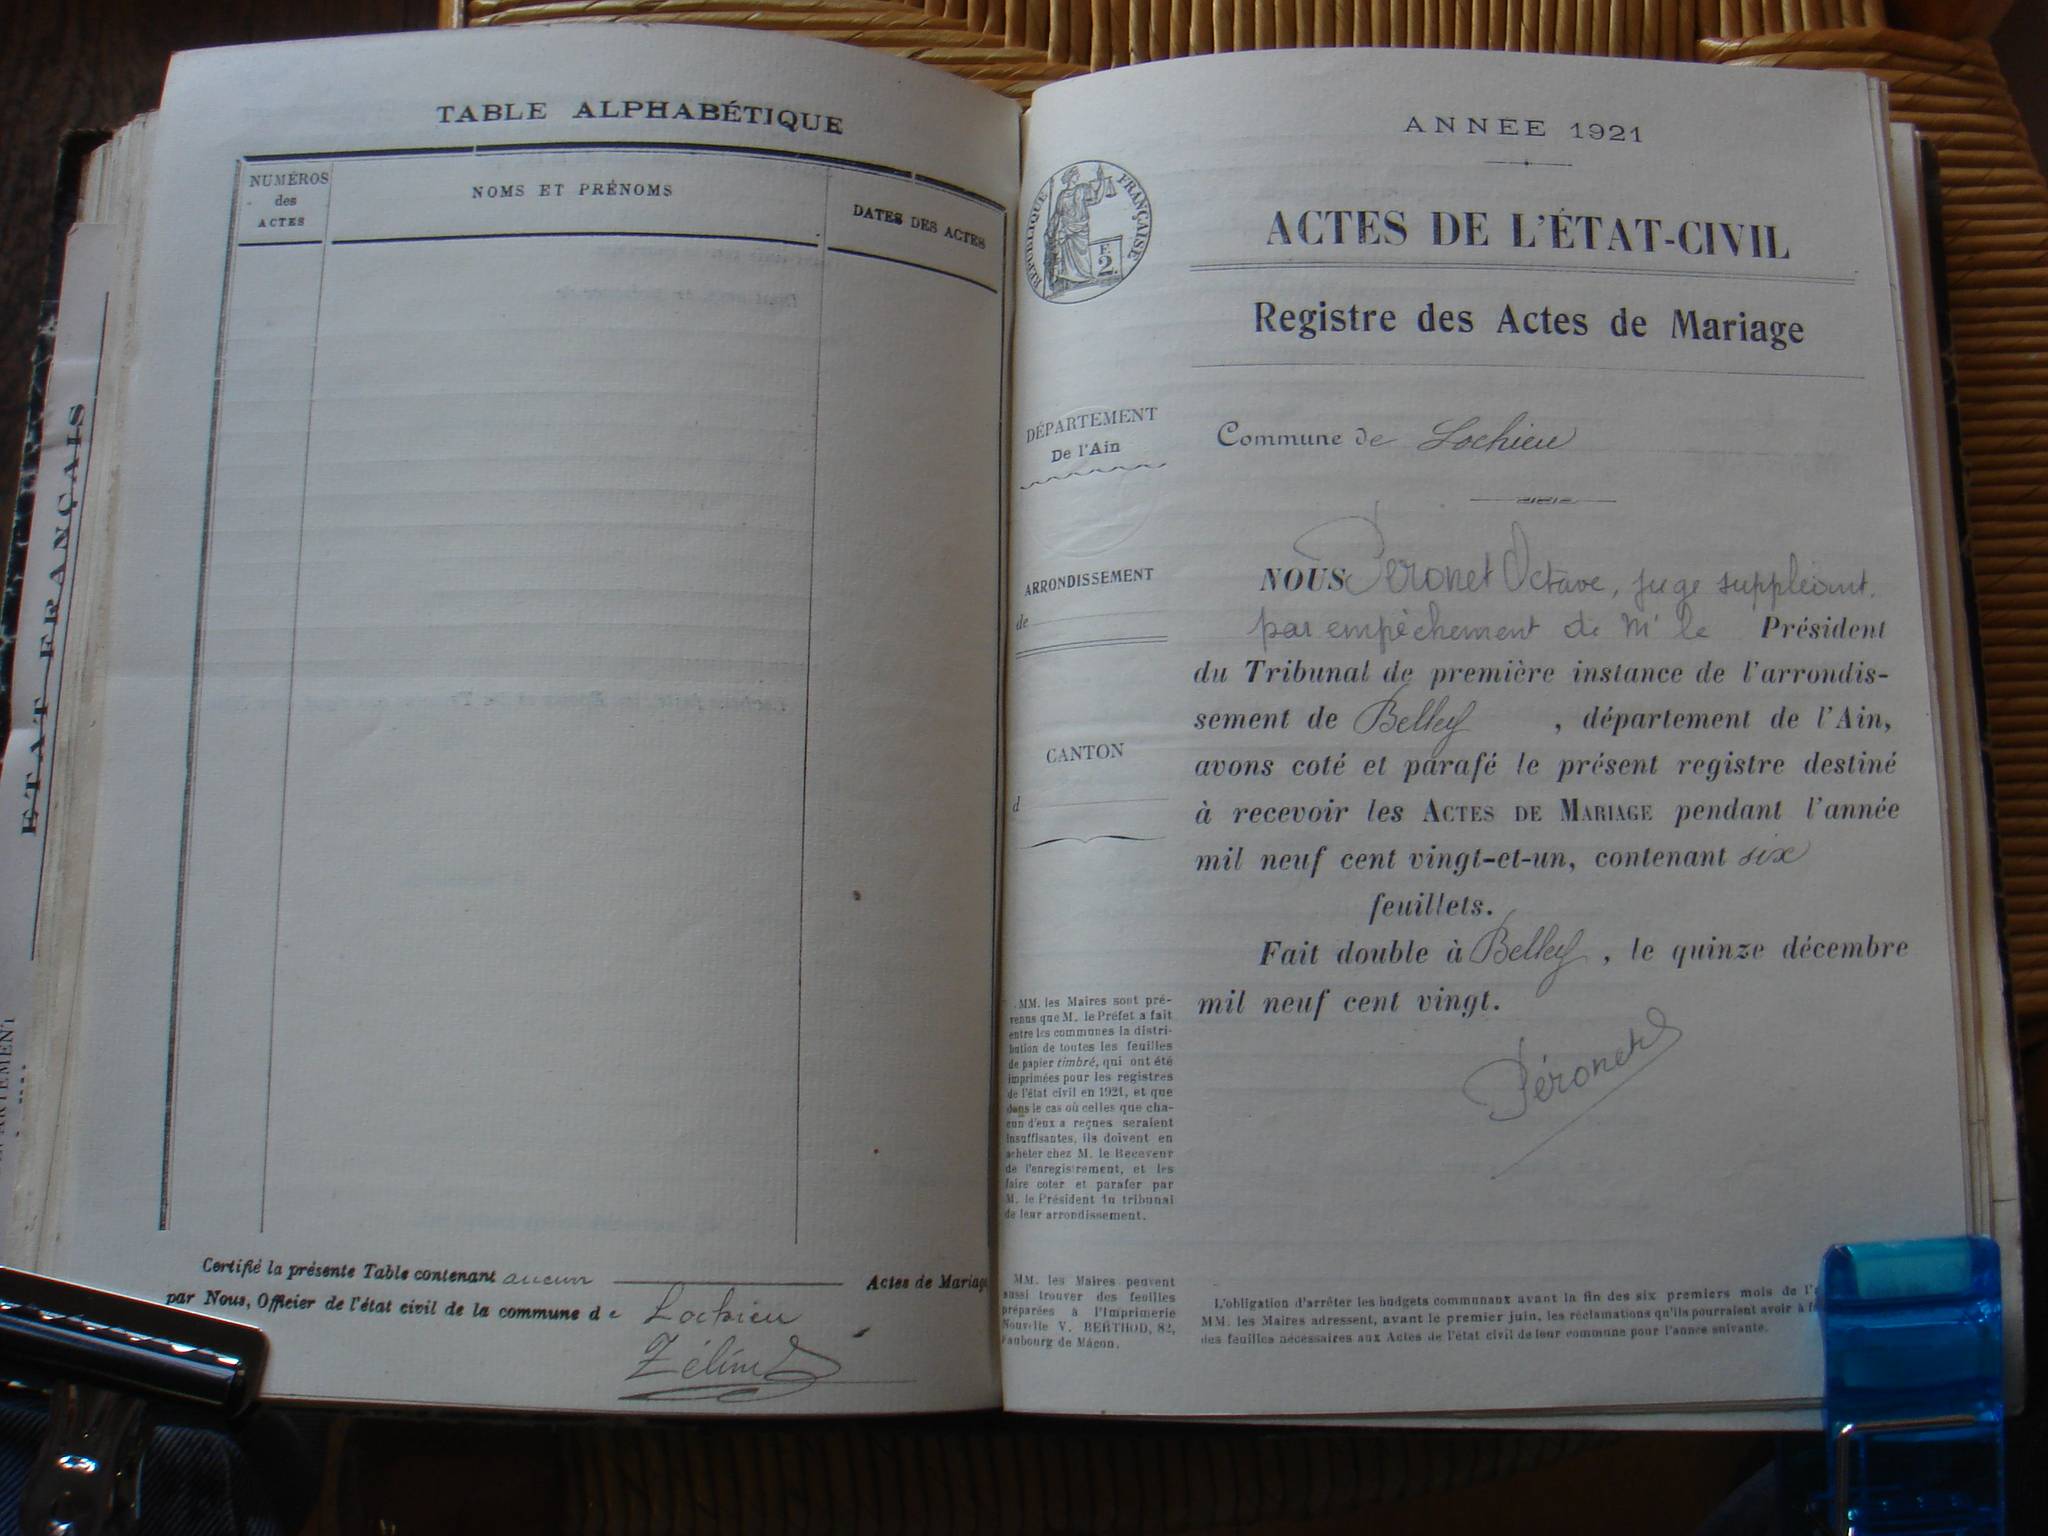 TABLE ALPHABÉTIQUE
NUMÉROS
des
ACTES
NOMS ET PRÉNOMS
DATES DES ACTES
Certifié la présente Table contenant aucun Actes de Mariage
par Nous, Officier de l'état civil de la commune de Lochieu
ÉTAT FRANÇAIS
ANNÉE 1921
RÉPUBLIQUE FRANÇAISE
F.
2.
ACTES DE L'ÉTAT-CIVIL
Registre des Actes de Mariage
DÉPARTEMENT
De l'Ain
Commune de Lochieu
ARRONDISSEMENT
de
CANTON
d
NOUS Péronet Octave, juge suppléant.
par empêchement de Mr le Président
du Tribunal de première instance de l'arrondis-
sement de Belley , département de l'Ain,
avons coté et parafé le présent registre destiné
à recevoir les ACTES DE MARIAGE pendant l'année
mil neuf cent vingt-et-un, contenant six
feuillets.
Fait double à Belley , le quinze décembre
mil neuf cent vingt.
Péronet
MM. les Maires sont pré-
venus que M. le Préfet a fait
entre les communes la distri-
bution de toutes les feuilles
de papier timbré, qui ont été
imprimées pour les registres
de l'état civil en 1921, et que
dans le cas où celles que cha-
cun d'eux a reçues seraient
insuffisantes, ils doivent en
acheter chez M. le Receveur
de l'enregistrement, et les
faire coter et parafer par
M. le Président du tribunal
de leur arrondissement.
MM. les Maires peuvent
aussi trouver des feuilles
préparées à l'Imprimerie
Nouvelle V. BERTHOD, 82,
Faubourg de Mâcon.
L'obligation d'arrêter les budgets communaux avant la fin des six premiers mois de
MM. les Maires adressent, avant le premier juin, les réclamations qu'ils pourraient avoir à
des feuilles nécessaires aux Actes de l'état civil de leur commune pour l'année suivante.